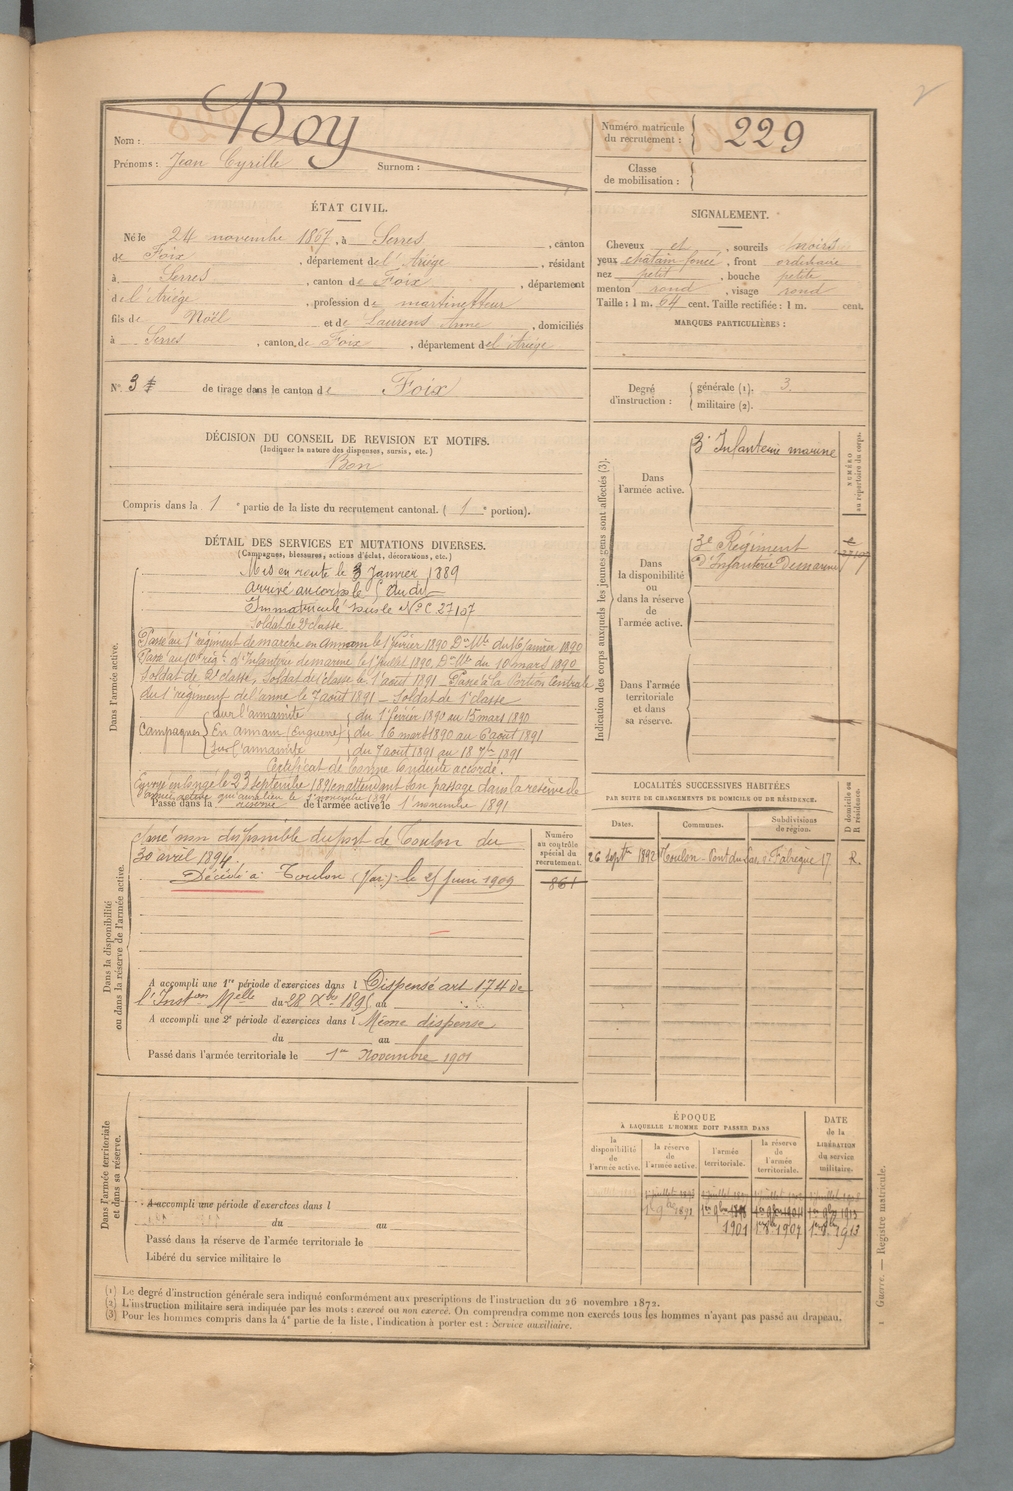 Nom : Boy
Prénoms : Jean Cyrille Surnom :
Numéro matricule du recrutement : 229
Classe de mobilisation :
ÉTAT CIVIL.
Né le 24 novembre 1867, à Serres, canton
de Foix, département de l'Ariège, résidant
à Serres, canton de Foix, département
de l'Ariège, profession de martinetteur
fils de Noël et de Laurens Anne, domiciliés
à Serres, canton de Foix, département de l'Ariège
N° 3 de tirage dans le canton de Foix
DÉCISION DU CONSEIL DE REVISION ET MOTIFS.
(Indiquer la nature des dispenses, sursis, etc.)
Bon
Compris dans la 1e partie de la liste du recrutement cantonal. ( 1e portion).
SIGNALEMENT.
Cheveux et, sourcils noirs
yeux chatain foncé, front ordinaire
nez petit, bouche petite
menton rond, visage rond
Taille : 1 m. 64 cent. Taille rectifiée : 1 m. cent.
MARQUES PARTICULIÈRES :
Degré d'instruction : générale (1). 3.
militaire (2).
DÉTAIL DES SERVICES ET MUTATIONS DIVERSES.
(Campagnes, blessures, actions d'éclat, décorations, etc.)
Dans l'armée active.
Mis en route le 3 Janvier 1889
arrivé au corps le dudit
Immatriculé sous le N° C. 27107
Soldat de 2e classe
Passé au 1er régiment de marche en Annam le 1er février 1890 Don Mlle du 16 janvier 1890
Passé au 10e régt d'Infanterie de marine le 1er juillet 1890. Don Mlle du 10 mars 1890
Soldat de 2e classe, Soldat de 1e classe le 1er août 1891 – Passé à la Portion Centrale
du 1er régiment de l'arme le 7 août 1891 – Soldat de 1e classe
Campagnes Sur l'annamite du 1er février 1890 au 15 mars 1890
En annam (en guerre) du 16 mars 1890 au 6 août 1891
Sur l'annamite du 7 août 1891 au 18 7bre 1891
Certificat de bonne conduite accordé.
Envoyé en congé le 23 septembre 1891 en attendant son passage dans la réserve de
l'armée active qui aura lieu le 1er novembre 1891
Passé dans la réserve de l'armée active le 1er novembre 1891
Dans la disponibilité ou dans la réserve de l'armée active.
Passé non disponible du port de Toulon du
30 avril 1894.
Décédé à Toulon (Var) le 25 Juin 1909
Numéro au contrôle spécial du recrutement.
861
A accompli une 1re période d'exercices dans l Dispensé art 174 de
l'Inston Melle du 28 Xbre 1895 au
A accompli une 2e période d'exercices dans l Même dispense
du au
Passé dans l'armée territoriale le 1er Novembre 1901
Dans l'armée territoriale et dans sa réserve.
A accompli une période d'exercices dans l
du au
Passé dans la réserve de l'armée territoriale le
Libéré du service militaire le
Indication des corps auxquels les jeunes gens sont affectés (3).
NUMÉRO au répertoire du corps.
Dans l'armée active.
3e Infanterie marine
Dans la disponibilité ou dans la réserve de l'armée active.
3e Régiment
d'Infanterie de marine
27107
Dans l'armée territoriale et dans sa réserve.
LOCALITÉS SUCCESSIVES HABITÉES
PAR SUITE DE CHANGEMENTS DE DOMICILE OU DE RÉSIDENCE.
Dates. Communes. Subdivisions de région. D domicile ou R résidence.
26 septbre 1892 Toulon - Pont du Las, r. Fabrègue 17 R.
ÉPOQUE
À LAQUELLE L'HOMME DOIT PASSER DANS
la disponibilité de l'armée active. la réserve de l'armée active. l'armée territoriale. la réserve de l'armée territoriale.
DATE de la LIBÉRATION du service militaire.
1er 9bre 1891 1er 9bre 1898 1er 9bre 1904 1er 9bre 1913
1901 1er 8bre 1907 1er 8bre 1913
(1) Le degré d'instruction générale sera indiqué conformément aux prescriptions de l'instruction du 26 novembre 1872.
(2) L'instruction militaire sera indiquée par les mots : exercé ou non exercé. On comprendra comme non exercés tous les hommes n'ayant pas passé au drapeau.
(3) Pour les hommes compris dans la 4e partie de la liste, l'indication à porter est : Service auxiliaire.
1 Guerre. — Registre matricule.